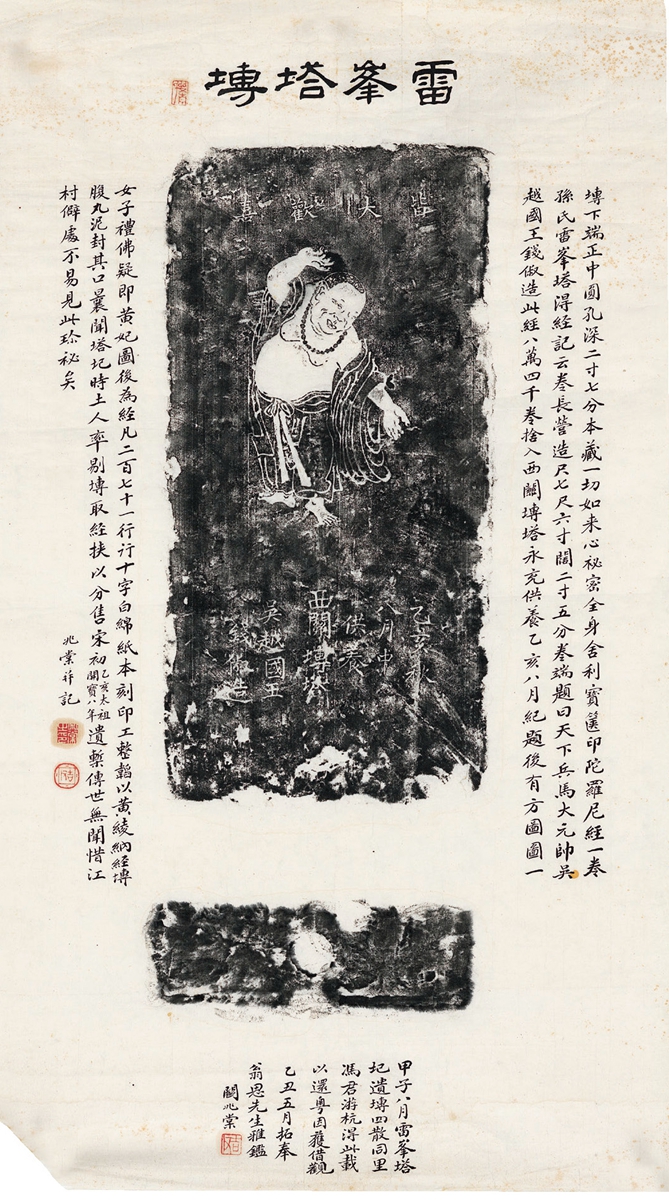 雷峯塔塼
皆大歡喜
乙亥秋
八月中
供養
西關塼塔
吳越國王
錢俶造
塼下端正中圓孔深二寸七分本藏一切如来心祕密全身舍利寶篋印陀羅尼經一卷
孫氏雷峯塔得經記云卷長營造尺七尺六寸闊二寸五分卷端題曰天下兵馬大元帥吳
越國王錢俶造此經八萬四千卷捨入西關塼塔永充供養乙亥八月紀題後有方圖圖一
女子禮佛疑即黃妃圖後為經凡二百七十一行行十字白綿紙本刻印工整韜以黃綾納經塼
腹丸泥封其口曩聞塔圮時土人率剔塼取經挾以分售宋初乙亥太祖開寶八年遺槧傳世無聞惜江
村僻處不易見此珍祕矣
兆棠并記
甲子八月雷峯塔
圮遺塼四散同里
馮君游杭得此載
以還粵因獲借觀
乙丑五月拓奉
翁恩先生雅鑑
關兆棠